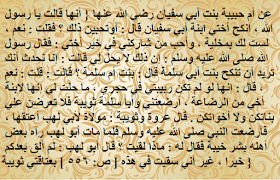 عن أم حبيبة بنت أبي سفيان رضي الله عنها { أنها قالت يا رسول
الله ، انكح أختي ابنة أبي سفيان قال : أوتحبين ذلك ؟ فقلت : نعم ،
لست لك بمخلية ، وأحب من شاركني في خير أختي ; فقال رسول
الله صلى الله عليه وسلم : إن ذلك لا يحل لي قالت : إنا نحدث أنك
تريد أن تنكح بنت أبي سلمة قال : بنت أم سلمة ؟ قالت : قلت : نعم
قال : إنها لو لم تكن ربيبتي في حجري ، ما حلت لي إنها لابنة
أخي من الرضاعة ، أرضعتني وأبا سلمة ثويبة فلا تعرضن علي
بناتكن ولا أخواتكن . قال عروة وثويبة : مولاة لأبي لهب أعتقها ،
فأرضعت النبي صلى الله عليه وسلم فلما مات أبو لهب رآه بعض
أهله بشر خيبة فقال له : ماذا لقيت ؟ قال أبو لهب : لم ألق بعدكم
خيرا ، غير أني سقيت في هذه [ ص: ٥٥٦ ] بعتاقتي ثويبة }